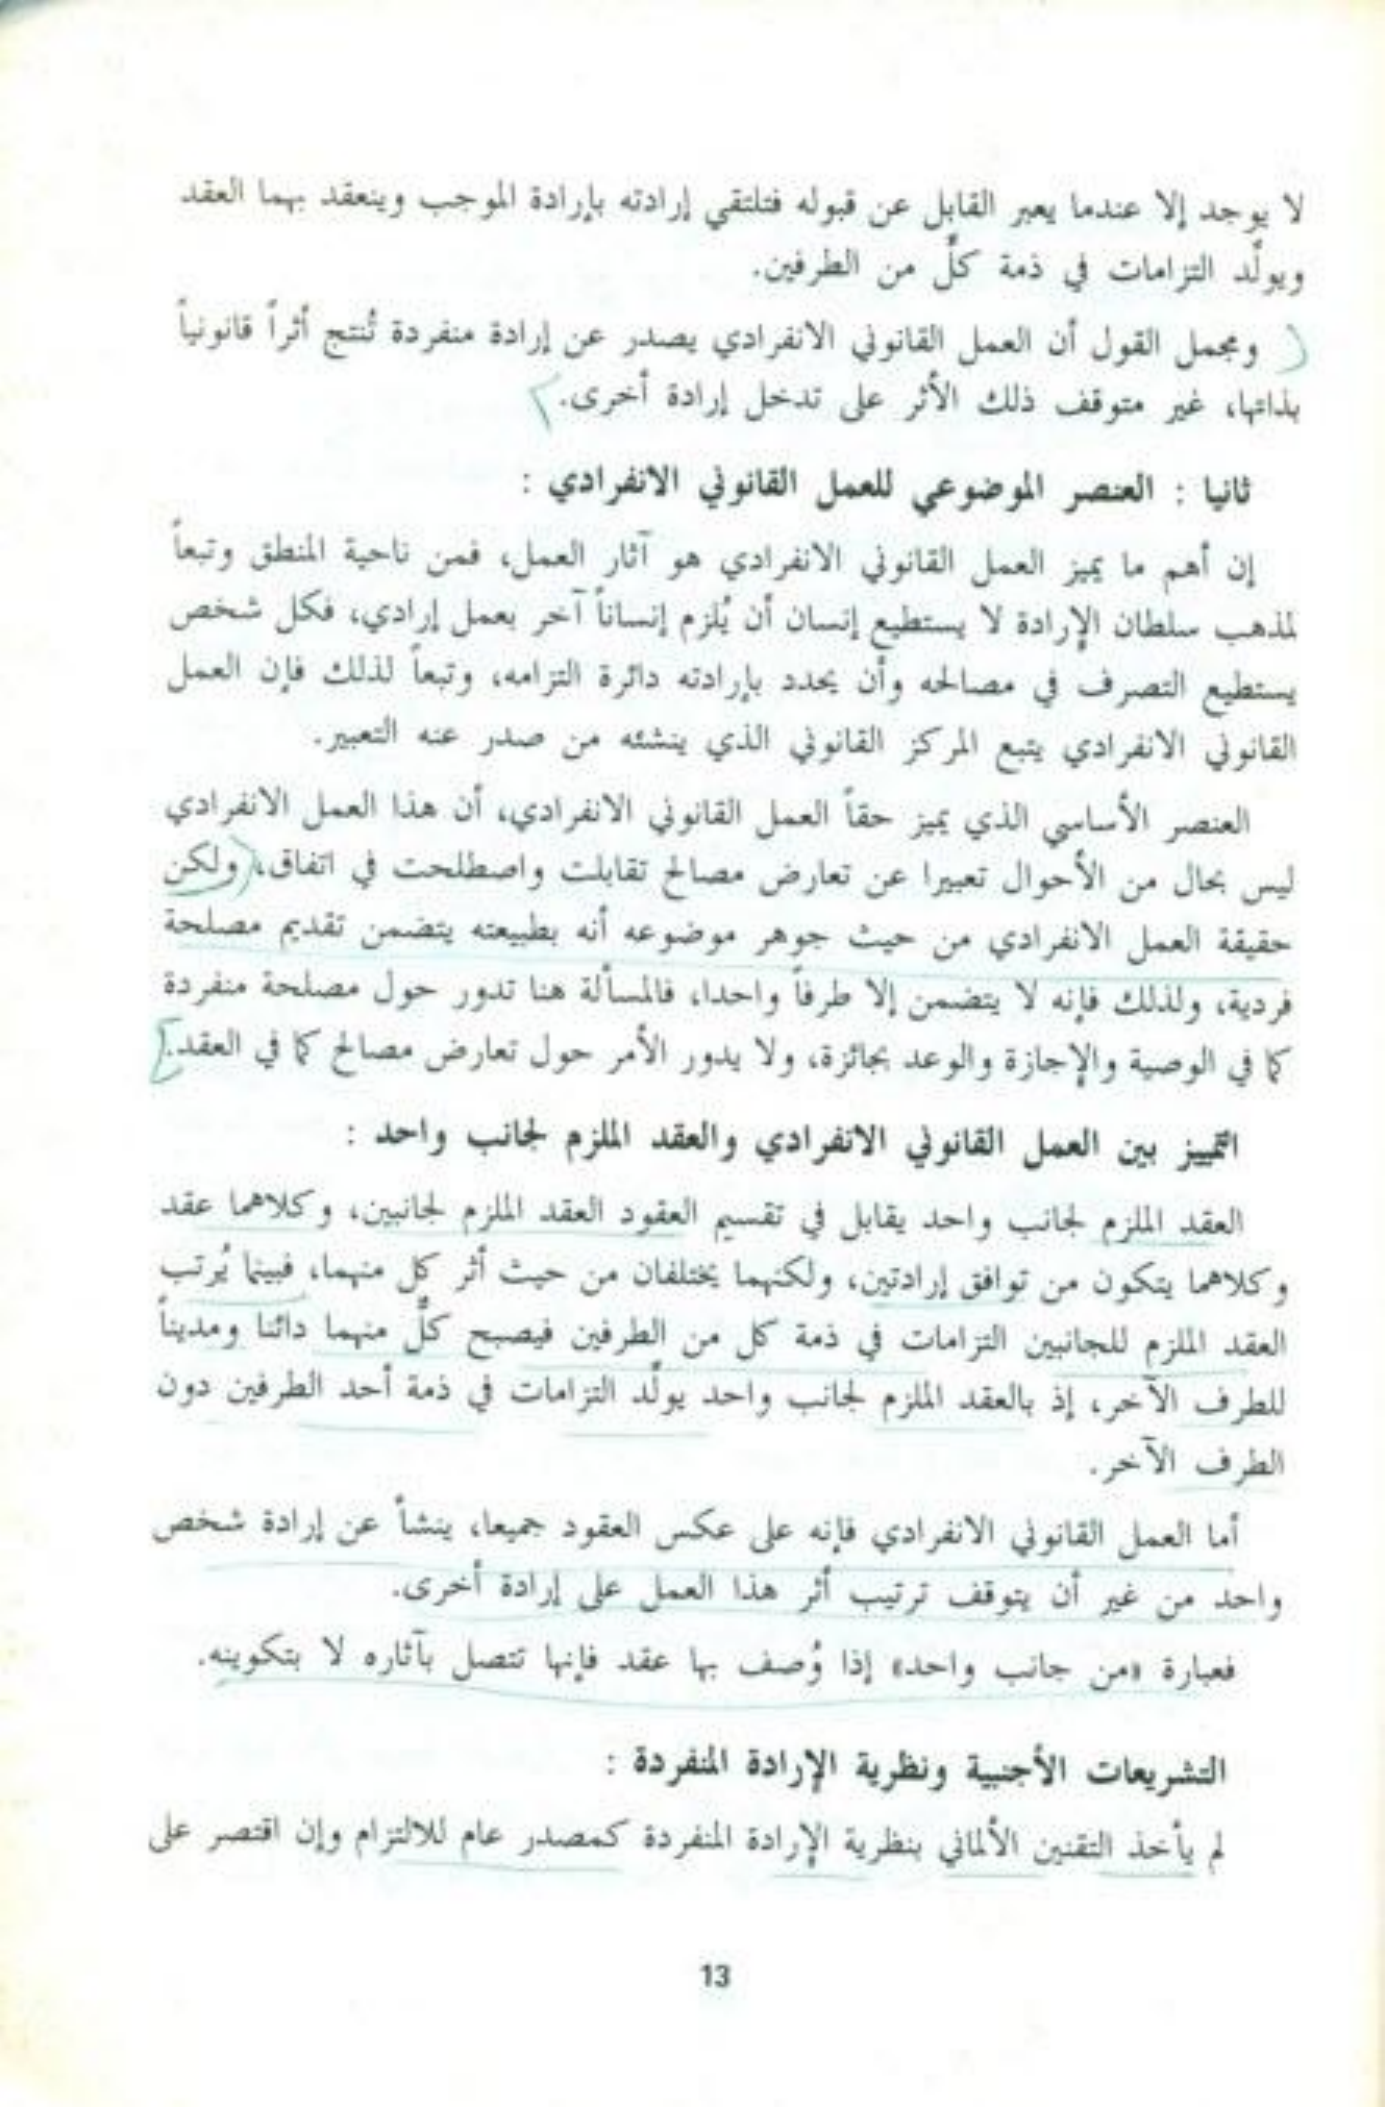 لا يوجد إلا عندما يعبر القابل عن قبوله فتلتقي إرادته بإرادة الموجب وينعقد بهما العقد
ويولّد التزامات في ذمة كلٍّ من الطرفين.
ومجمل القول أن العمل القانوني الانفرادي يصدر عن إرادة منفردة تُنتج أثراً قانونياً
بذاتها، غير متوقف ذلك الأثر على تدخل إرادة أخرى.
ثانيا : العنصر الموضوعي للعمل القانوني الانفرادي :
إن أهم ما يميز العمل القانوني الانفرادي هو آثار العمل، فمن ناحية المنطق وتبعاً
لمذهب سلطان الإرادة لا يستطيع إنسان أن يُلزم إنساناً آخر بعمل إرادي، فكل شخص
يستطيع التصرف في مصالحه وأن يحدد بإرادته دائرة التزامه، وتبعاً لذلك فإن العمل
القانوني الانفرادي يتبع المركز القانوني الذي ينشئه من صدر عنه التعبير.
العنصر الأساسي الذي يميز حقاً العمل القانوني الانفرادي، أن هذا العمل الانفرادي
ليس بحال من الأحوال تعبيرا عن تعارض مصالح تقابلت واصطلحت في اتفاق، ولكن
حقيقة العمل الانفرادي من حيث جوهر موضوعه أنه بطبيعته يتضمن تقديم مصلحة
فردية، ولذلك فإنه لا يتضمن إلا طرفاً واحدا، فالمسألة هنا تدور حول مصلحة منفردة
كما في الوصية والإجازة والوعد بجائزة، ولا يدور الأمر حول تعارض مصالح كما في العقد.
التمييز بين العمل القانوني الانفرادي والعقد الملزم لجانب واحد :
العقد الملزم لجانب واحد يقابل في تقسيم العقود العقد الملزم لجانبين، وكلاهما عقد
وكلاهما يتكون من توافق إرادتين، ولكنهما يختلفان من حيث أثر كل منهما، فبينما يُرتب
العقد الملزم للجانبين التزامات في ذمة كل من الطرفين فيصبح كلٌّ منهما دائنا ومديناً
للطرف الآخر، إذ بالعقد الملزم لجانب واحد يولّد التزامات في ذمة أحد الطرفين دون
الطرف الآخر.
أما العمل القانوني الانفرادي فإنه على عكس العقود جميعا، ينشأ عن إرادة شخص
واحد من غير أن يتوقف ترتيب أثر هذا العمل على إرادة أخرى.
فعبارة «من جانب واحد» إذا وُصف بها عقد فإنها تتصل بآثاره لا بتكوينه.
التشريعات الأجنبية ونظرية الإرادة المنفردة :
لم يأخذ التقنين الألماني بنظرية الإرادة المنفردة كمصدر عام للالتزام وإن اقتصر على
13